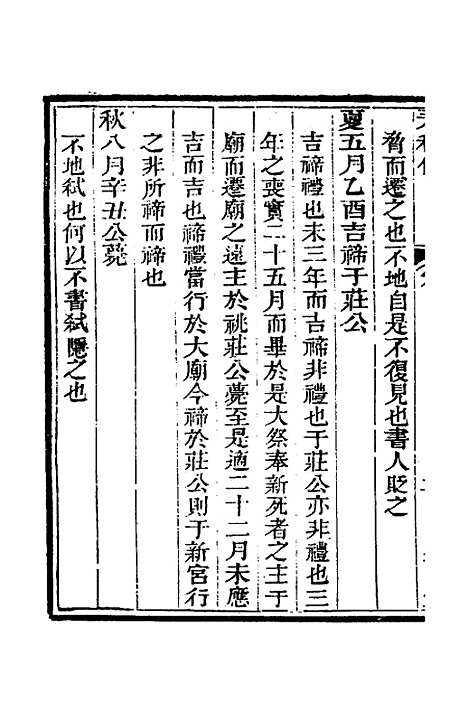 脅而遷之也不地自是不復見也書人貶之
夏五月乙酉吉禘于莊公
吉禘禮也未三年而吉禘非禮也于莊公亦非禮也三
年之喪實二十五月而畢於是大祭奉新死者之主于
廟而遷廟之遠主於祧莊公薨至是適二十二月未應
吉而吉也禘禮當行於大廟今禘於莊公則于新宮行
之非所禘而禘也
秋八月辛丑公薨
不地弑也何以不書弑隱之也